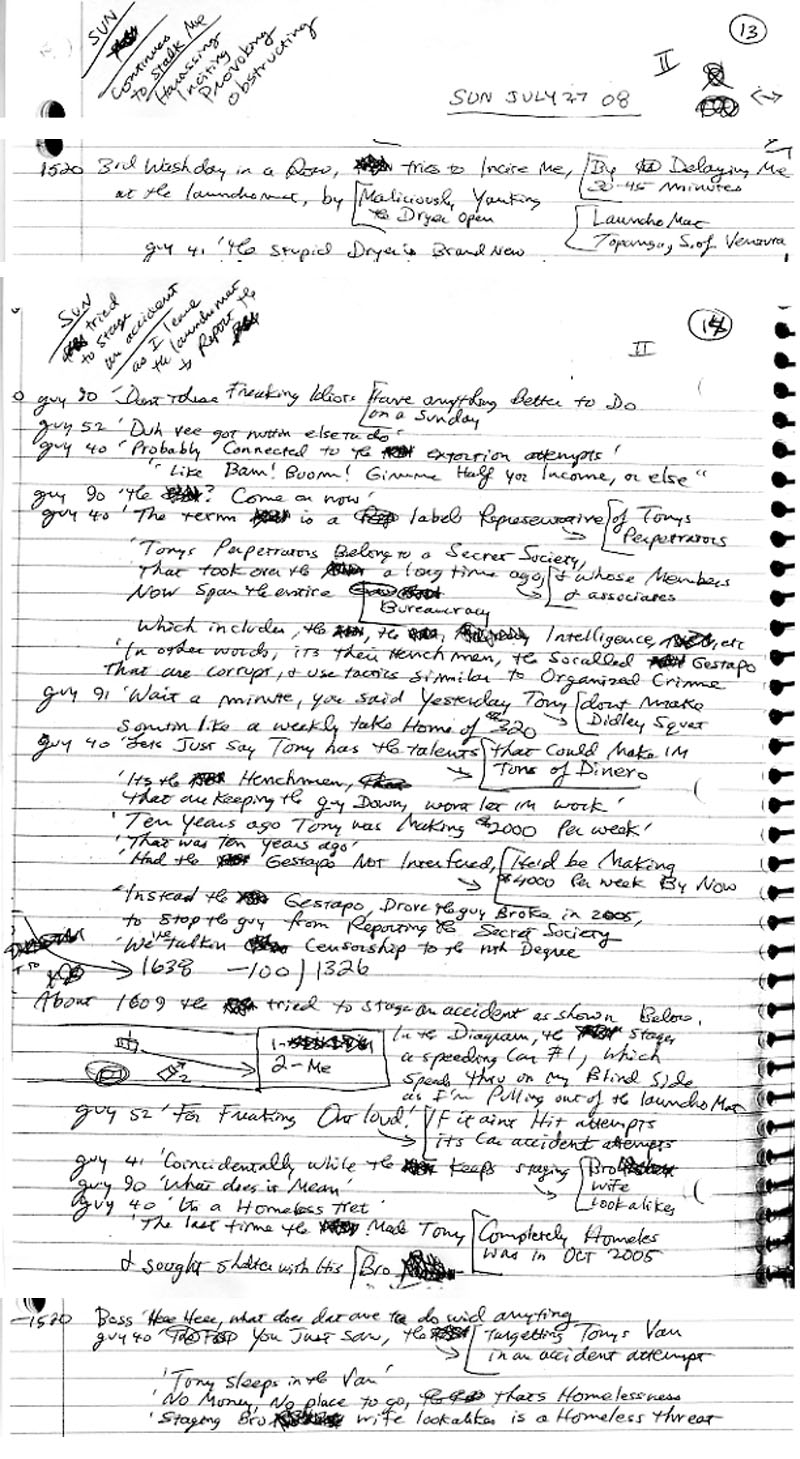 13
SUN
continues
to stalk me
Harassing
Inciting
Provoking
Obstructing
II
SUN JULY 27 08
1520 3rd Wash day in a Row, tries to Incise Me, By Delaying Me
30-45 minutes
at the laundromat, by Maliciously Yanking
the Dryer open
Laundro Mat
Topanga, S. of Ventura
guy 41 'the stupid Dryer is Brand New
14
SUN
tried
to stage
an accident
as I leave
the laundromat
to Report the
II
guy 90 'Dont these Freaking Idiots Have anything better to Do
on a Sunday
guy 52 'Duh vee got nuttin else to do'
guy 40 'Probably Connected to the extortion attempts'
'Like Bam! Boom! Gimme Half yor Income, or else"
guy 90 'the ? Come on now'
guy 40 'The term is a label Representative of Tonys
Perpetrators
'Tonys Perpetrators Belong to a Secret Society,
That took over the a long time ago, & whose Members
& associates
Now Span the entire
Bureaucracy
Which includes, the , the , Intelligence, , etc
'In other words, its their Henchmen, the socalled Gestapo
That are corrupt, & use tactics similar to Organized Crime
guy 91 'Wait a minute, you said Yesterday Tony dont make
Didley Squat
Somtin like a weekly take Home of $320
guy 40 'Lets Just Say Tony has the talents that Could Make im
Tons of Dinero
'Its the Henchmen,
that are keeping the guy Down, wont let im work'
'Ten years ago Tony was Making $2000 Per week'
'That was ten years ago'
'Had the Gestapo Not Interfered, He'd be Making
$4000 Per week By Now
'Instead the Gestapo, Drove the guy Broke in 2005,
to stop the guy from Reporting the Secret Society
'We're talken Censorship to the nth Degree
1638 -100 | 1326
About 1609 the tried to stage an accident as shown Below.
1-
2-Me
2
In the Diagram, the stages
a speeding Car #1, which
speeds thru on my Blind Side
as I'm Pulling out of the laundro Mat
guy 52 'For Freaking Out loud! If it aint Hit attempts
its Car accident attempts
guy 41 'Coincidentally while the keeps staging Bro
wife
lookalikes
guy 90 'What does it Mean'
guy 40 'Its a Homeless Tret'
'The last time the Made Tony Completely Homeless
was in OCT 2005
& sought shelter with His Bro
-1520 Boss 'Hee Heee, what does dat ave to do wid anything
guy 40 You Just saw, the Targetting Tonys Van
in an accident attempt
'Tony sleeps in the Van'
'No Money, No place to go, thats Homelessness
'Staging Bro wife lookalikes is a Homeless threat